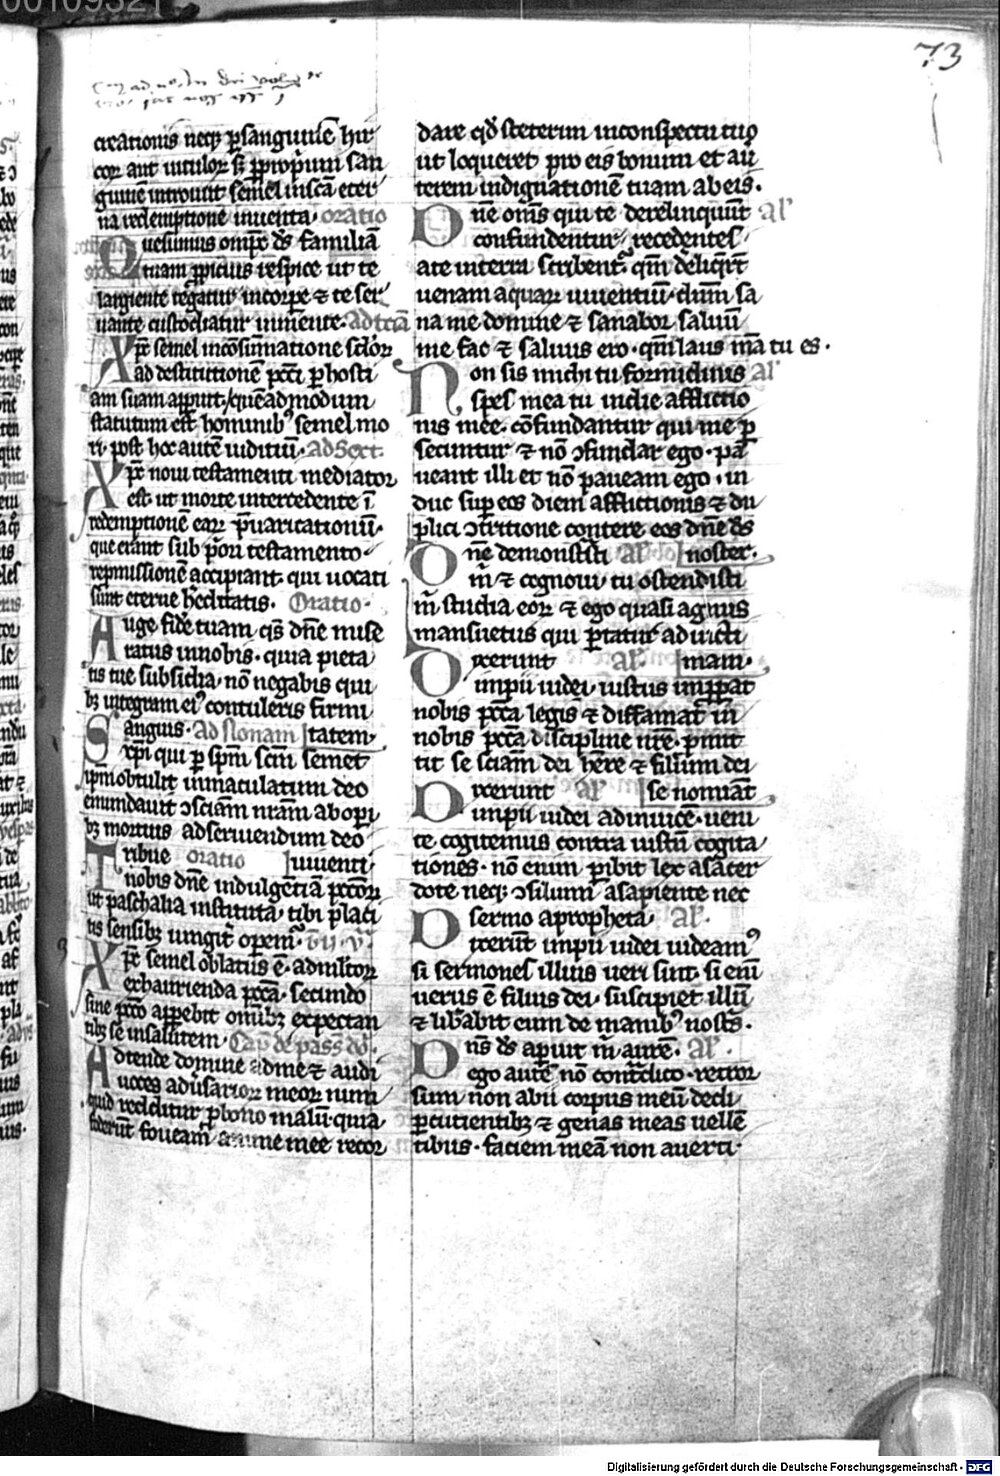 73
creationis neqꝫ ꝑ sanguinē hir
coꝝ aut uituloꝝ sꝫ ꝑ ꝓprium san
guinē introiuit semel in sc̄a eter
na redemptione inuenta· oratio
Quesumus omp̄c ds̄ familiā
tuam ꝓpicius respice ut te
largiente regatur in corpe ⁊ te ser
uante custodiatur in mente· ad terciā
Xp̄c semel in cōsūmatione scl̄oꝝ
ad destitutionē pcc̄i ꝑ hosti
am suam apparuit / quēadmodum
statutum est hominibꝰ semel mo
ri· post hoc autē iudiciū· ad Sext.
Xp̄c noui testamenti mediator
est ut morte intercedente ī
redemptionē eaꝝ p̄uaricationū·
que erant sub p̄ori testamento
repmissionē accipiant qui uocati
sunt eterne h̄editatis. Oratio·
Auge fidē tuam qs̄ dn̄e mise
ratus in nobis· quia pieta
tis tue subsidia· nō negabis qui
bꝫ integram eiꝰ contuleris firmi
Sanguis· Ad Nonam tatem
xp̄i qui ꝑ sp̄m sc̄m semet
ip̄m obtulit inmaculatum deo
emundauit ↄsciam nr̄am ab operi
bꝫ mortuis ad seruiendum deo
Tribue oratio uiuenti·
nobis dn̄e indulgētiā pcc̄oꝝ
ut paschalia instituta· tibi placi
tis sensibꝫ iungat operū·
Xp̄c semel oblatus ē· ad multoꝝ
exhaurienda pcc̄a· secundo
sine pcc̄o apparebit omībꝫ expectan
tibꝫ se in salutem· Cap̄ de pass̄ dō.
Adtende domine ad me ⁊ audi
uoces aduersarioꝝ meoꝝ num
quid redditur ꝑ bono malū· quia
foderūt foueam anime mee recor
dare qd̄ steterim in conspectu tuo
ut loquerer pro eis bonum et au
terem indignationē tuam ab eis.
Dn̄e om̄s qui te derelinquūt al'
confundentur· recedentes
a te in terra scribent' qm̄ deliqr̄t
uenam aquaꝝ uiuentiū dn̄m sa
na me domine ⁊ sanabor saluū
me fac ⁊ saluus ero· qm̄ laus m̄a tu es.
Non sis michi tu formidinis al'
spes mea tu in die afflictio
nis mee. cōfundantur qui me ꝑ
secuntur ⁊ nō ↄfundar ego· pa
ueant illi et nō paueam ego· in
duc suꝑ eos diem afflictionis ⁊ du
plici ↄtritione contere eos dn̄e ds̄
Dn̄e demonstrasti al' noster·
m̄ ⁊ cognoui· tu ostendisti
m̄ studia eoꝝ ⁊ ego quasi agnus
mansuetus qui portatur ad uicti
Dixerunt al' mam·
impii iudei· iustus impp̄at
nobis pcc̄a legis ⁊ diffamat in
nobis pcc̄a discipline nr̄e· p̄mit
tit se sciam dei h̄ere ⁊ filium dei
Dixerunt al' se nominat
impii iudei ad inuicē· ueni
te cogitemus contra iustū cogita
tiones· nō enim ꝑibit lex a sacer
dote neqꝫ ↄsilium a sapiente nec
sermo a propheta· al'.
Dixerūt impii iudei uideamꝰ
si sermones illius ueri sint· si enī
uerus ē filius dei· suscipiet illū
⁊ libabit eum de manibꝰ nostris.
Dns̄ ds̄ aperuit m̄ aurē· al'.
ego autē nō contradico· retror
sum non abii corpus meū dedi
ꝑcutientibꝫ ⁊ genas meas uellē
tibus· faciem meā non auerti·
Digitalisierung gefördert durch die Deutsche Forschungsgemeinschaft - DFG